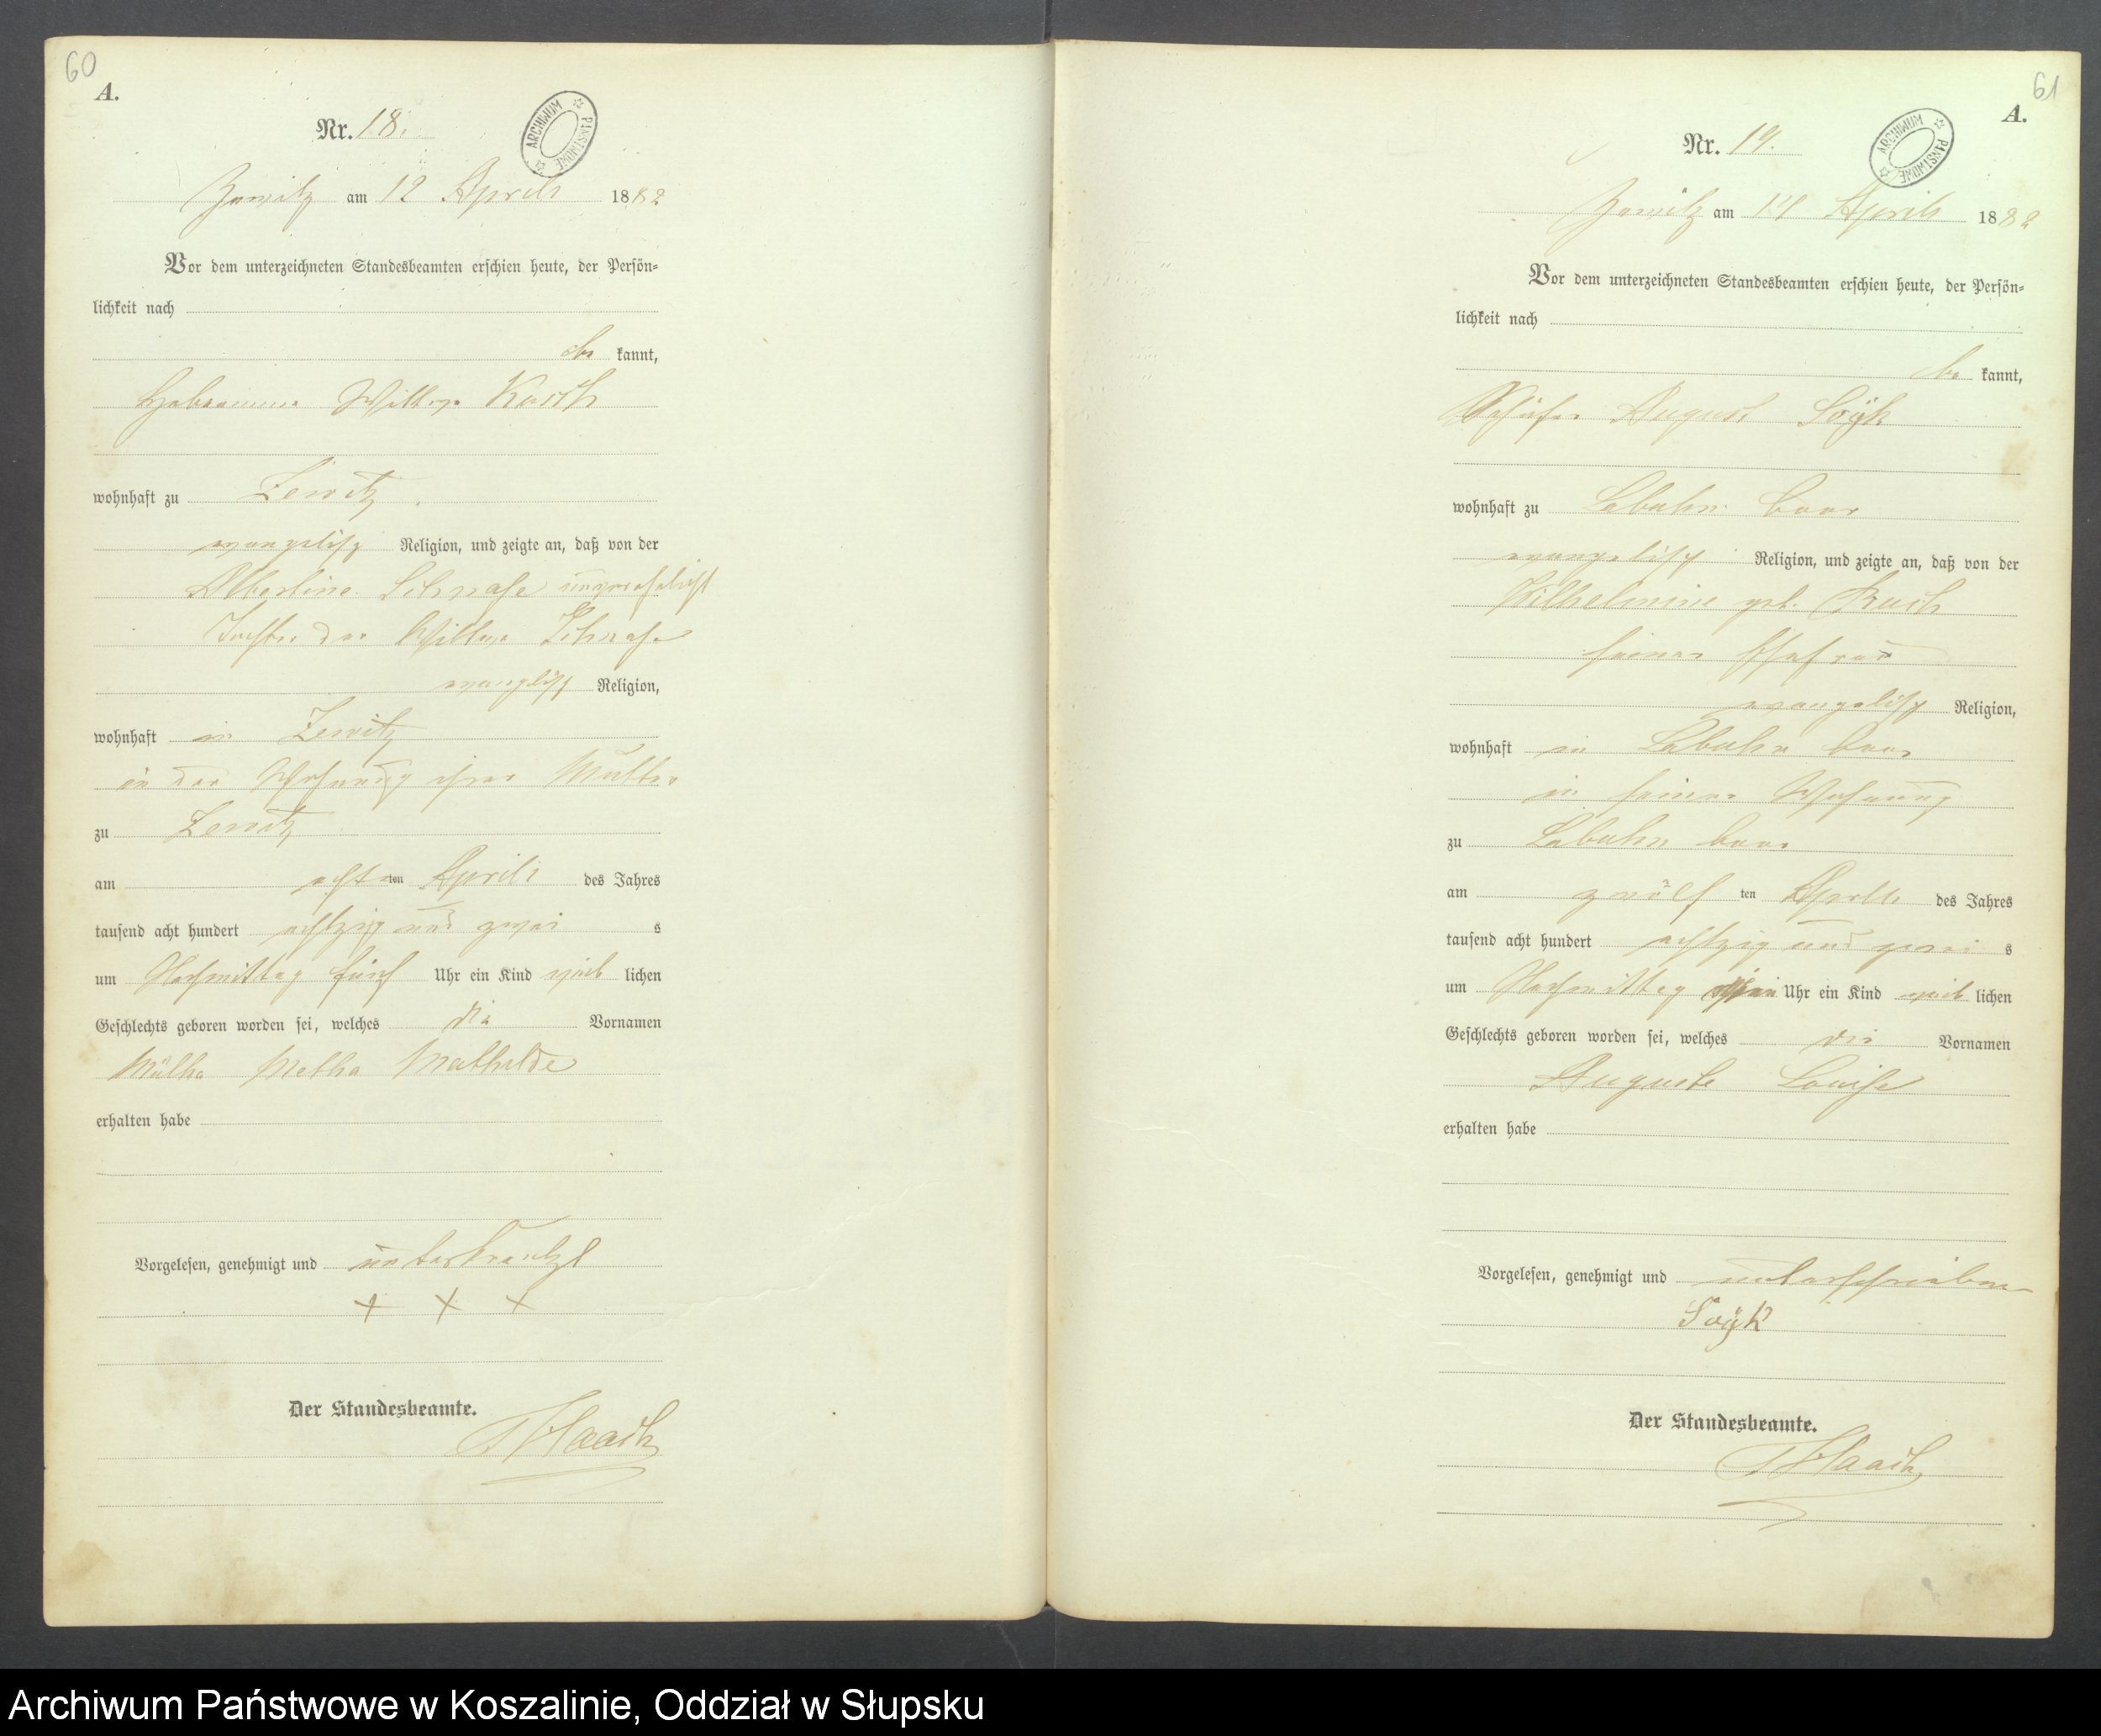 60
A.
Nr. 18.
ARCHIWUM PANSTWOWE
Zewitz am 12 April 1882
Vor dem unterzeichneten Standesbeamten erschien heute, der Persön=
lichkeit nach
be kannt,
Hebeamme Wittwe Kusch
wohnhaft zu Zewitz.
evangelisch Religion, und zeigte an, daß von der
Albertine unverehelicht
Tochter der Wittwe
evangelisch Religion,
wohnhaft in Zewitz
in der Wohnung ihrer Mutter
zu Zewitz
am achten ten April des Jahres
tausend acht hundert achtzig und zwei s
um Nachmittag fünf Uhr ein Kind weib lichen
Geschlechts geboren worden sei, welches die Vornamen
Metha Mathilde
erhalten habe
Vorgelesen, genehmigt und unterkreutzt
+ + +
Der Standesbeamte.
61
A.
Nr. 19.
ARCHIWUM PANSTWOWE
Zewitz am 14 April 1882
Vor dem unterzeichneten Standesbeamten erschien heute, der Persön=
lichkeit nach
be kannt,
Schäfer August Soÿk
wohnhaft zu Labuhn
evangelisch Religion, und zeigte an, daß von der
Wilhelmine geb. Kusch
seiner Ehefrau
evangelisch Religion,
wohnhaft in Labuhn
in seiner Wohnung
zu Labuhn
am zwölf ten April des Jahres
tausend acht hundert achtzig und zwei s
um Nachmittag Uhr ein Kind weib lichen
Geschlechts geboren worden sei, welches die Vornamen
Auguste Louise
erhalten habe
Vorgelesen, genehmigt und unterschrieben
Soÿk
Der Standesbeamte.
Archiwum Państwowe w Koszalinie, Oddział w Słupsku